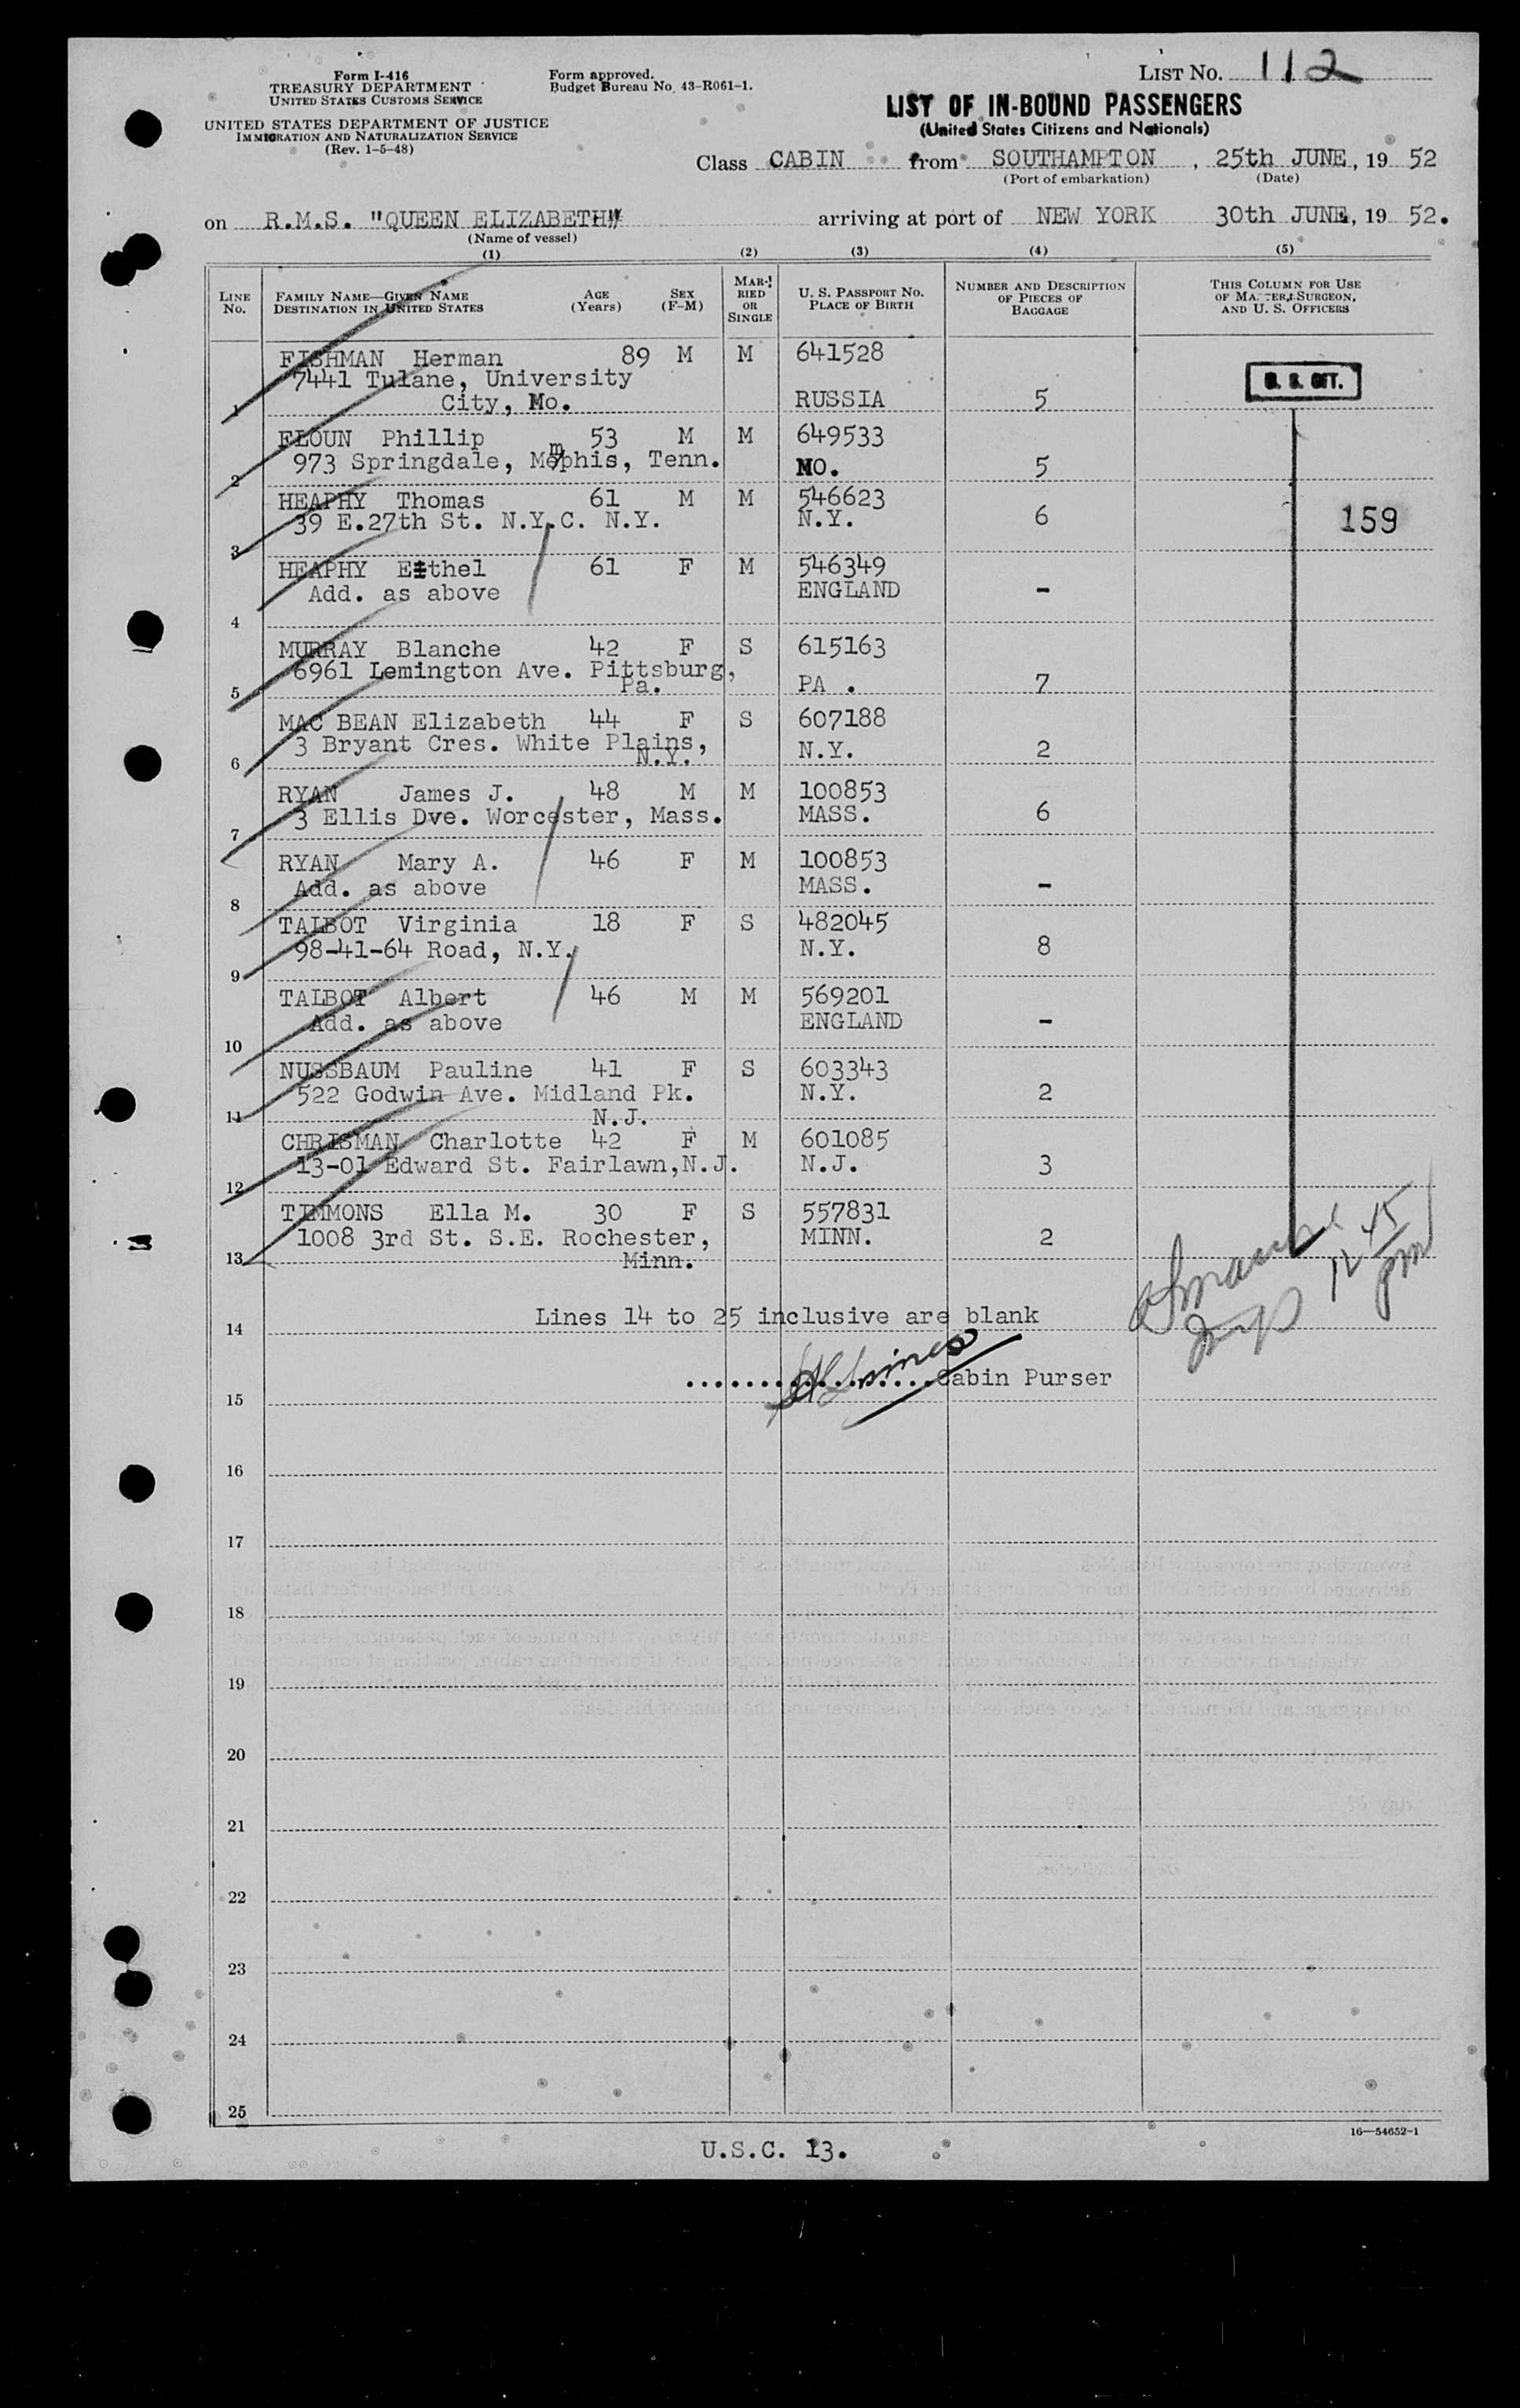 Form I-416
TREASURY DEPARTMENT
UNITED STATES CUSTOMS SERVICE
UNITED STATES DEPARTMENT OF JUSTICE
IMMIGRATION AND NATURALIZATION SERVICE
(Rev. 1-5-48)
Form approved.
Budget Bureau No. 43-R061-1.
LIST NO. 112
LIST OF IN-BOUND PASSENGERS
(United States Citizens and Nationals)
Class CABIN from SOUTHAMPTON, 25th JUNE, 19 52
(Port of embarkation) (Date)
on R.M.S. "QUEEN ELIZABETH" arriving at port of NEW YORK 30th JUNE, 19 52.
(Name of vessel)
(1) (2) (3) (4) (5)
LINE No. FAMILY NAME—GIVEN NAME DESTINATION IN UNITED STATES AGE (Years) SEX (F-M) MARRIED OR SINGLE U. S. PASSPORT NO. PLACE OF BIRTH NUMBER AND DESCRIPTION OF PIECES OF BAGGAGE THIS COLUMN FOR USE OF MASTER, SURGEON, AND U. S. OFFICERS
FISHMAN Herman 89 M M 641528
7441 Tulane, University
1 City, Mo. RUSSIA 5
U. S. CIT.
ELOUN Phillip 53 M M 649533
973 Springdale, Memphis, Tenn. MO. 5
2
HEAPHY Thomas 61 M M 546623
39 E.27th St. N.Y.C. N.Y. N.Y. 6
159
3
HEAPHY Ethel 61 F M 546349
Add. as above ENGLAND -
4
MURRAY Blanche 42 F S 615163
6961 Lemington Ave. Pittsburg,
5 Pa. PA . 7
MAC BEAN Elizabeth 44 F S 607188
3 Bryant Cres. White Plains,
6 N.Y. N.Y. 2
RYAN James J. 48 M M 100853
3 Ellis Dve. Worcester, Mass. MASS. 6
7
RYAN Mary A. 46 F M 100853
Add. as above MASS. -
8
TALBOT Virginia 18 F S 482045
98-41-64 Road, N.Y. N.Y. 8
9
TALBOT Albert 46 M M 569201
Add. as above ENGLAND -
10
NUSSBAUM Pauline 41 F S 603343
522 Godwin Ave. Midland Pk. N.Y. 2
11 N.J.
CHRISMAN Charlotte 42 F M 601085
13-01 Edward St. Fairlawn,N.J. N.J. 3
12
TIMMONS Ella M. 30 F S 557831
1008 3rd St. S.E. Rochester, MINN. 2
13 Minn.
12 45 pm
Lines 14 to 25 inclusive are blank
14
Cabin Purser
15
16
17
18
19
20
21
22
23
24
25
16—54652-1
U.S.C. 13.